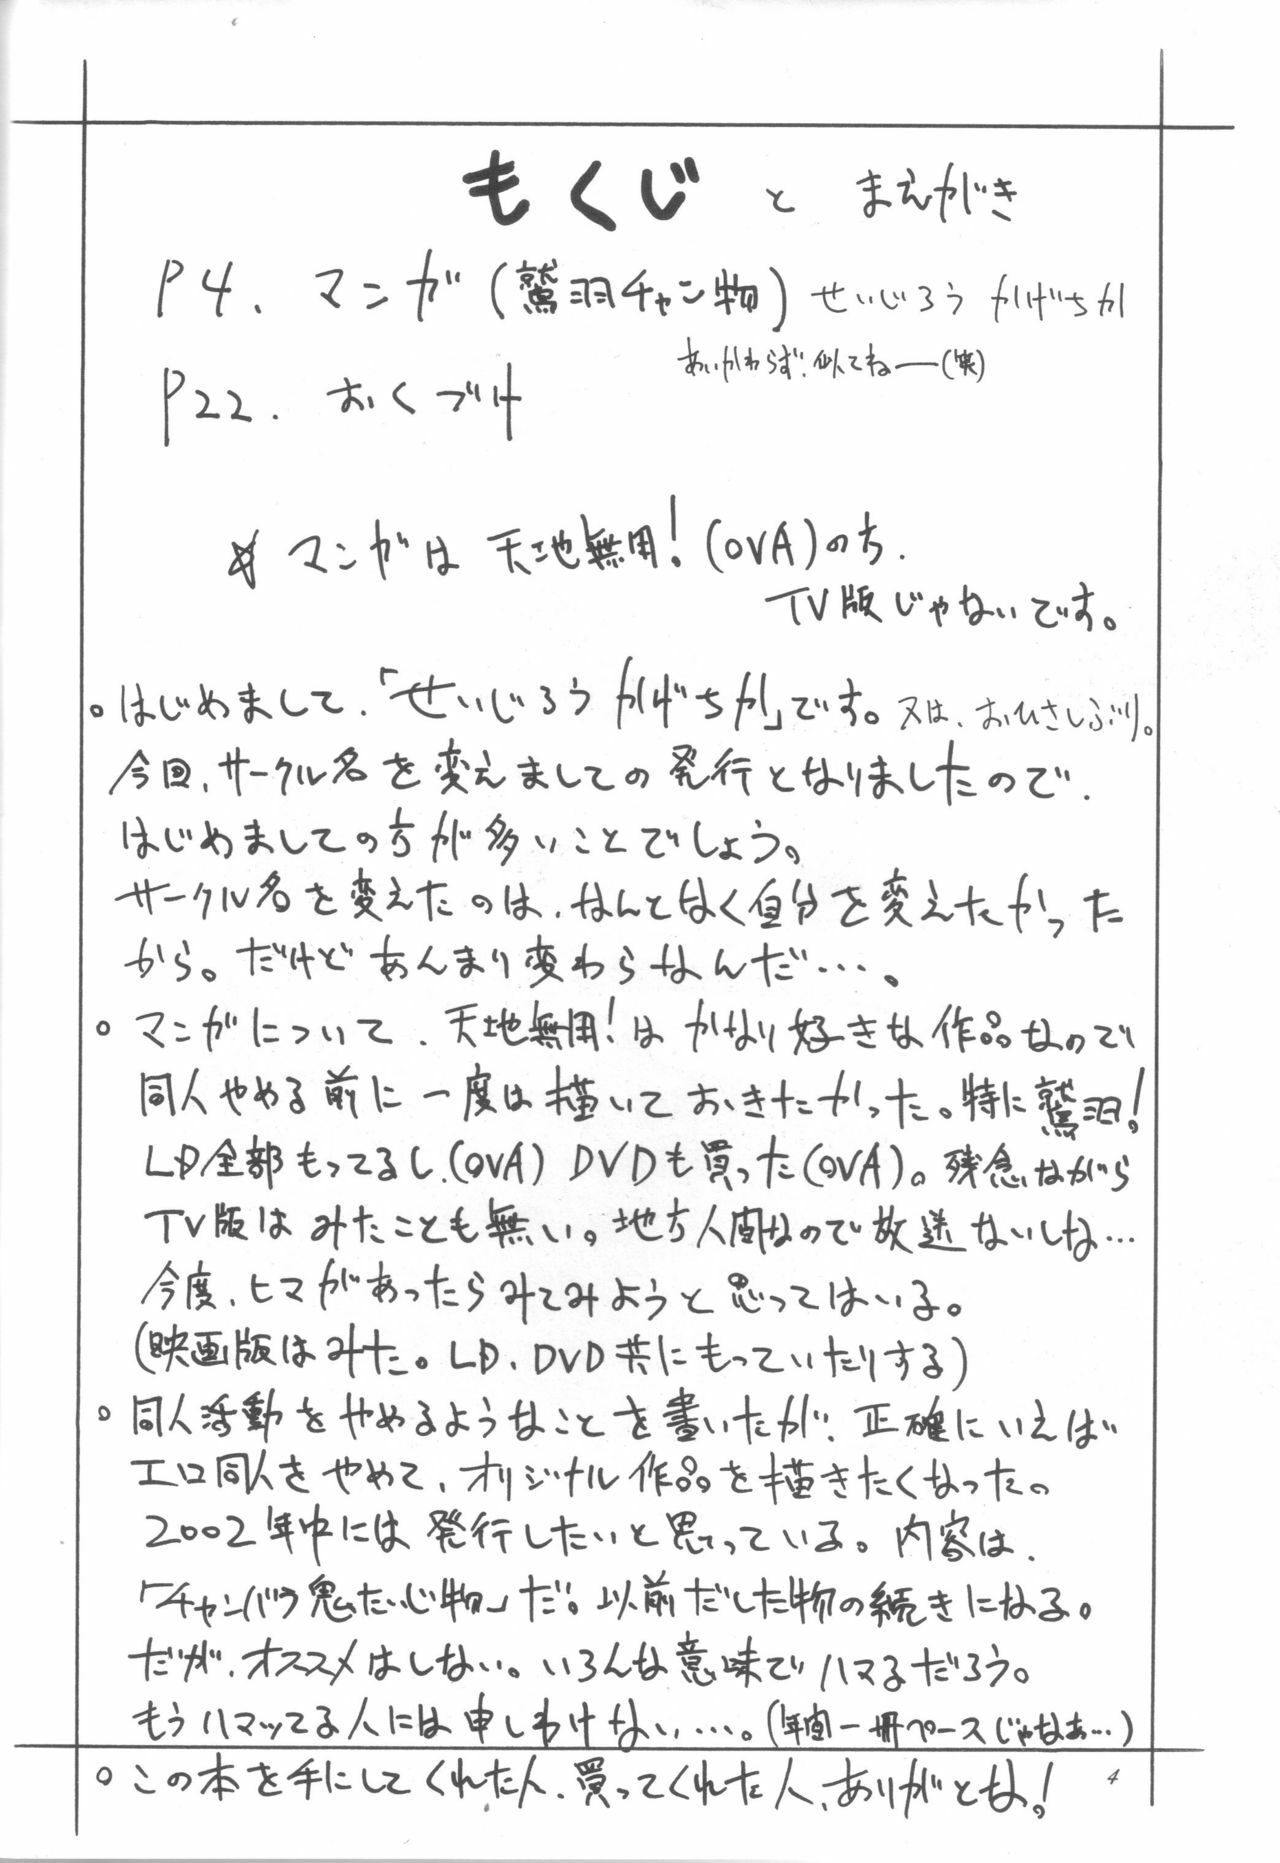 もくじ と まえがき
P4. マンガ(鷲羽チャン物) せいじろう かげちか
あいかわらず、似てねー(笑)
P22. おくづけ
☆ マンガは 天地無用!(OVA)の方.
TV版じゃないです。
○ はじめまして.「せいじろう かげちか」です。又は、おひさしぶり。
今回、サークル名を変えましての発行となりましたので、
はじめましての方が多いことでしょう。
サークル名を変えたのは、なんとなく自分を変えたかった
から。だけどあんまり変わらなんだ…。
○ マンガについて、天地無用!はかなり好きな作品なので
同人やめる前に一度は描いておきたかった。特に鷲羽!
LD全部もってるし、(OVA) DVDも買った(OVA)。残念ながら
TV版はみたことも無い。地方人間なので放送ないしな…
今度、ヒマがあったらみてみようと思ってはいる。
(映画版はみた。LD、DVD共にもっていたりする)
○ 同人活動をやめるようなことを書いたが、正確にいえば
エロ同人をやめて、オリジナル作品を描きたくなった。
2002年中には発行したいと思っている。内容は、
「チャンバラ鬼たいじ物」だ。以前だした物の続きになる。
だが、オススメはしない。いろんな意味でハマるだろう。
もうハマッてる人には申しわけない…。(年間一冊ペースじゃなぁ…)
○ この本を手にしてくれた人、買ってくれた人、ありがとな!
4